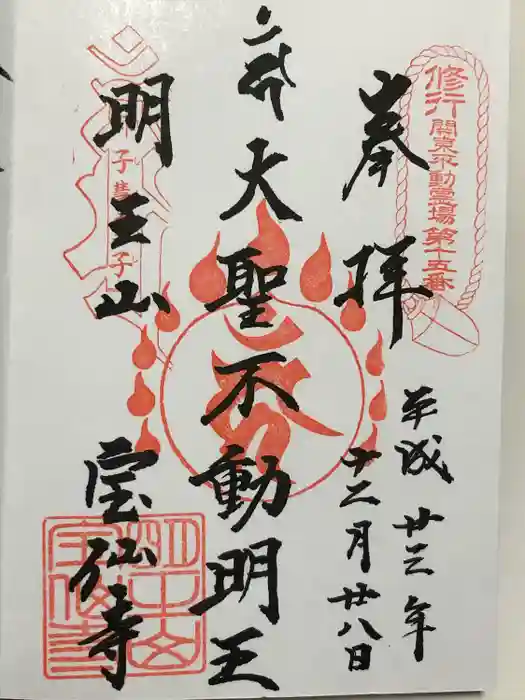 奉拝
修行 関東不動霊場第十五番
平成廿三年
十二月廿八日
大聖不動明王
明王山
宝仙寺